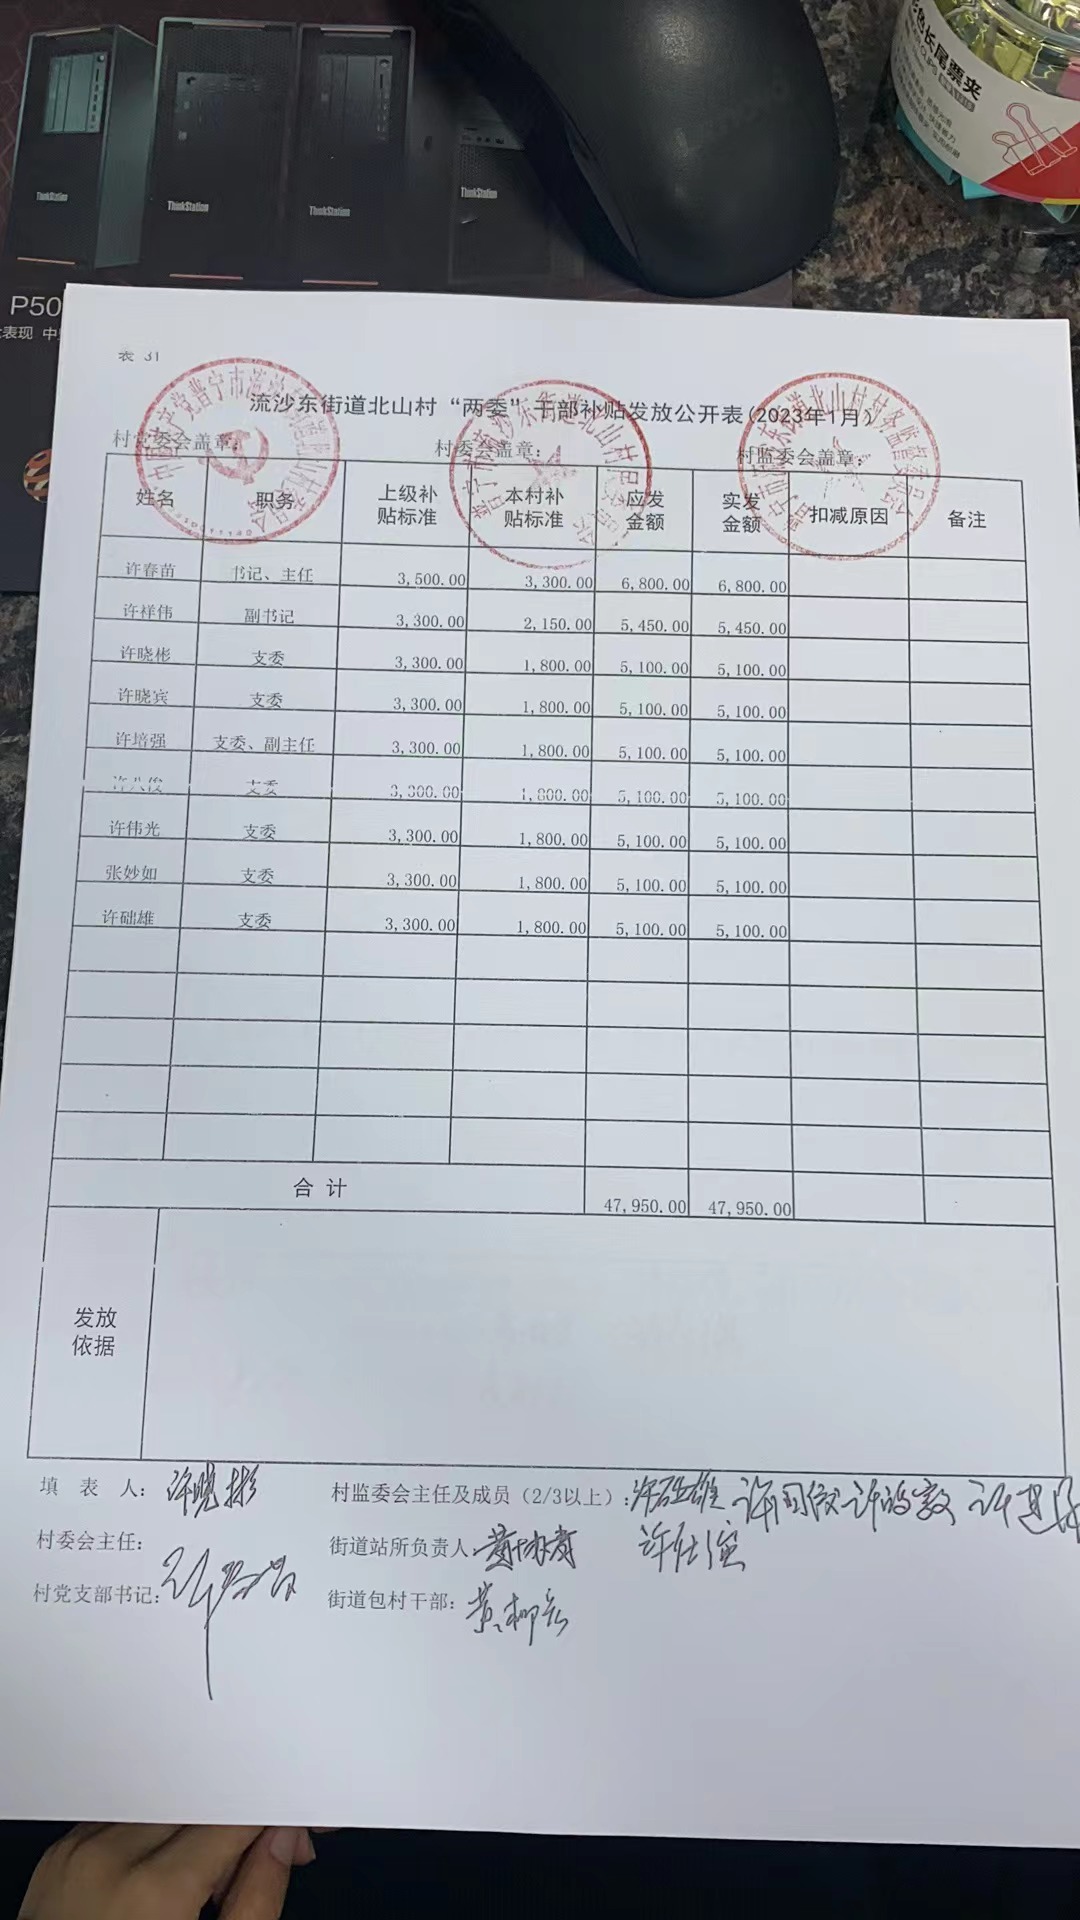 ThinkStation
ThinkStation
ThinkStation
ThinkStation
P50
表现 中
色长尾票夹
表 31
流沙东街道北山村“两委”干部补贴发放公开表(2023年1月)
村党委会盖章： 村委会盖章： 村监委会盖章：
姓名 职务 上级补贴标准 本村补贴标准 应发金额 实发金额 扣减原因 备注
许春苗 书记、主任 3,500.00 3,300.00 6,800.00 6,800.00
许祥伟 副书记 3,300.00 2,150.00 5,450.00 5,450.00
许晓彬 支委 3,300.00 1,800.00 5,100.00 5,100.00
许晓宾 支委 3,300.00 1,800.00 5,100.00 5,100.00
许培强 支委、副主任 3,300.00 1,800.00 5,100.00 5,100.00
许 俊 支委 3,300.00 1,800.00 5,100.00 5,100.00
许伟光 支委 3,300.00 1,800.00 5,100.00 5,100.00
张妙如 支委 3,300.00 1,800.00 5,100.00 5,100.00
许础雄 支委 3,300.00 1,800.00 5,100.00 5,100.00
合 计 47,950.00 47,950.00
发放依据
填 表 人： 许晓彬 村监委会主任及成员（2/3以上）：许础雄
村委会主任： 街道站所负责人：
村党支部书记： 街道包村干部：